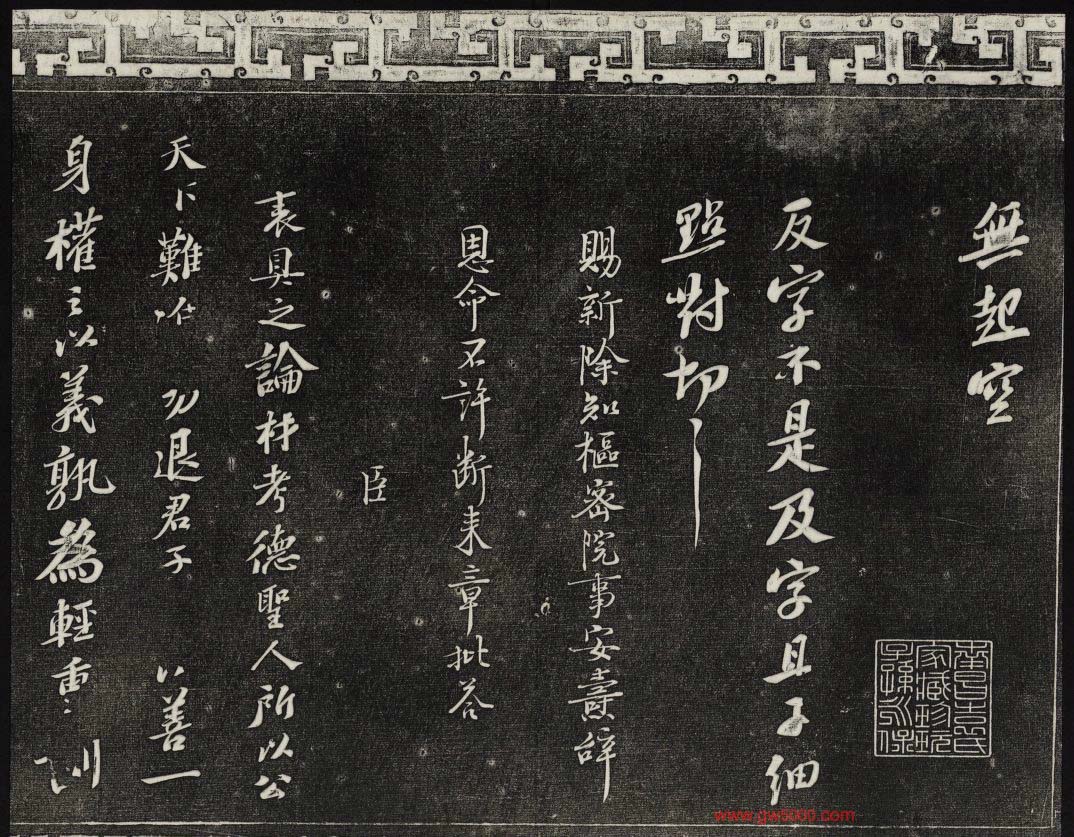 無起空
反字不是及字且子細
點對切〻
賜新除知樞密院事安燾辭
恩命不許斷來章批答
臣
表具之論材考德聖人所以公
天下難 退君子 以善一
身權之以義孰為輕重
南昌袁氏
家藏珍玩
子孫永保
www.gw5000.com